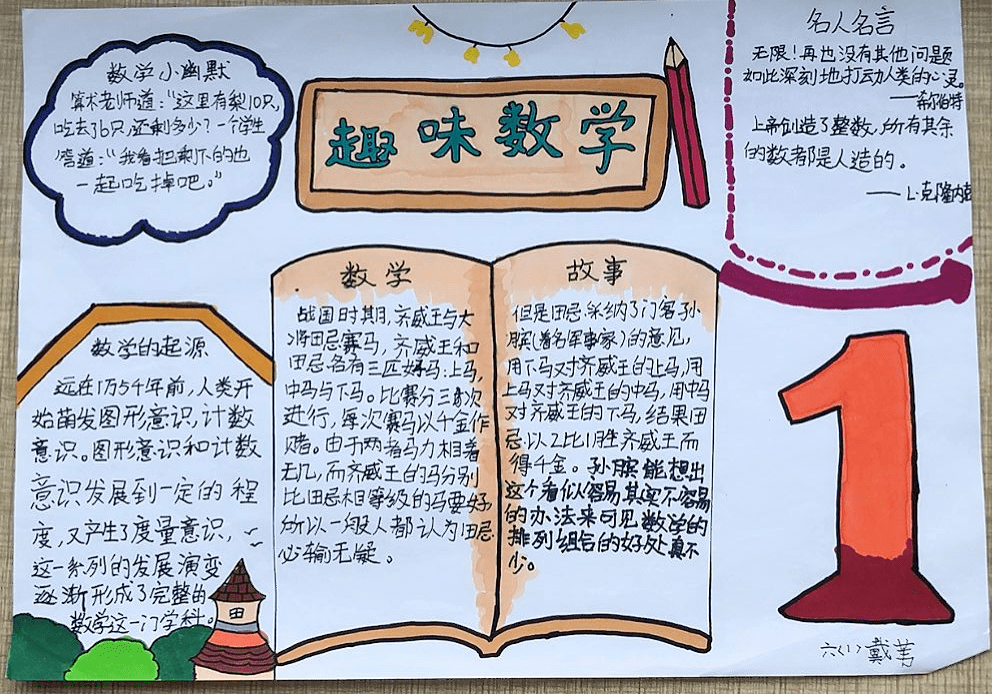 数学小幽默
算术老师道：“这里有梨10只，
吃去了6只，还剩多少？一个学生
答道：“我看把剩下的也
一起吃掉吧。”
趣味数学
名人名言
无限！再也没有其他问题
如此深刻地打动人类的心灵。
——希尔伯特
上帝创造了整数，所有其余
的数都是人造的。
——L·克隆内克
数学
战国时其月，齐威王与大
将田忌赛马，齐威王和
田忌各有三匹好马：上马，
中马与下马。比赛分三次
进行，每次赛马以千金作
赌。由于两者马力相差
无几，而齐威王的马分别
比田忌相等级的马要好，
所以一般人都认为田忌
必输无疑。
故事
但是田忌采纳了门客孙
膑（著名军事家）的意见，
用下马对齐威王的上马，用
上马对齐威王的中马，用中马
对齐威王的下马，结果田
忌以2比1胜齐威王而
得千金。孙膑能想出
这个看似容易其实不容易
的办法来可见数学的
排列组合的好处真不
少。
数学的起源
远在1万5千年前，人类开
始萌发图形意识，计数
意识。图形意识和计数
意识发展到一定的程
度，又产生了度量意识，
这一系列的发展演变
逐渐形成了完整的
数学这一门学科。
1
六（1）戴